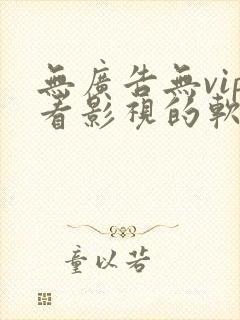 無廣告無vip
看影視的軟
童以若